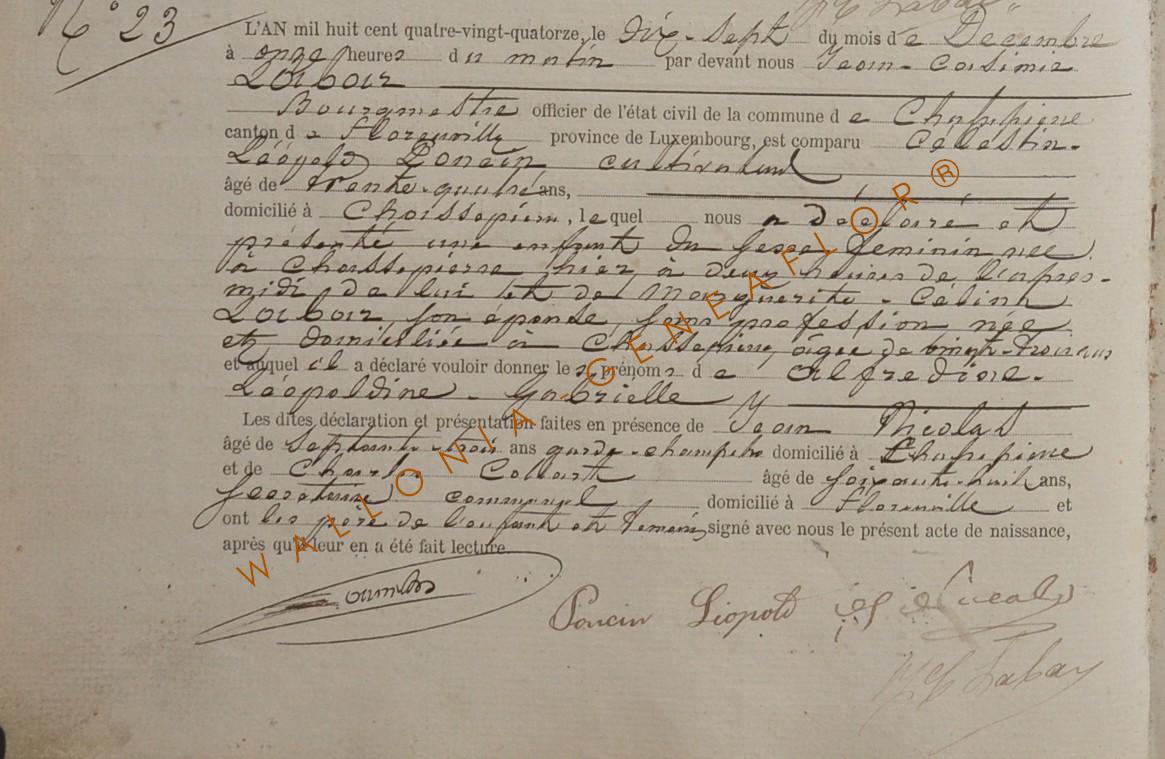 N° 23
L'AN mil huit cent quatre-vingt-quatorze, le Dix-Sept du mois de Decembre
à onze heures du matin par devant nous Jean-Casimir
Labbar
Bourgmestre officier de l'état civil de la commune de Chassepierre
canton de Florenville province de Luxembourg, est comparu Célestin-
Léopold Poncin cultivateur
âgé de trente-quatre ans,
domicilié à Chassepierre, lequel nous a déclaré et
présenté une enfant du sexe feminin née
à Chassepierre hier à deux heures de l'après-
midi de lui et de Marguerite-Célina
Labbar son épouse, sans profession née
et domiciliée à Chassepierre, âgée de vingt-trois ans
et auquel il a déclaré vouloir donner les prénoms de Alfredine-
Léopoldine-Gabrielle
Les dites déclaration et présentation faites en présence de Jean Nicolas
âgé de septante-trois ans garde-champêtre domicilié à Chassepierre
et de Charles Collart âgé de soixante-huit ans,
secretaire communal domicilié à Florenville et
ont les père de l'enfant et temoins signé avec nous le présent acte de naissance,
après qu'il leur en a été fait lecture.
Poncin Léopold
WALLONIA-GENEAFLOR®